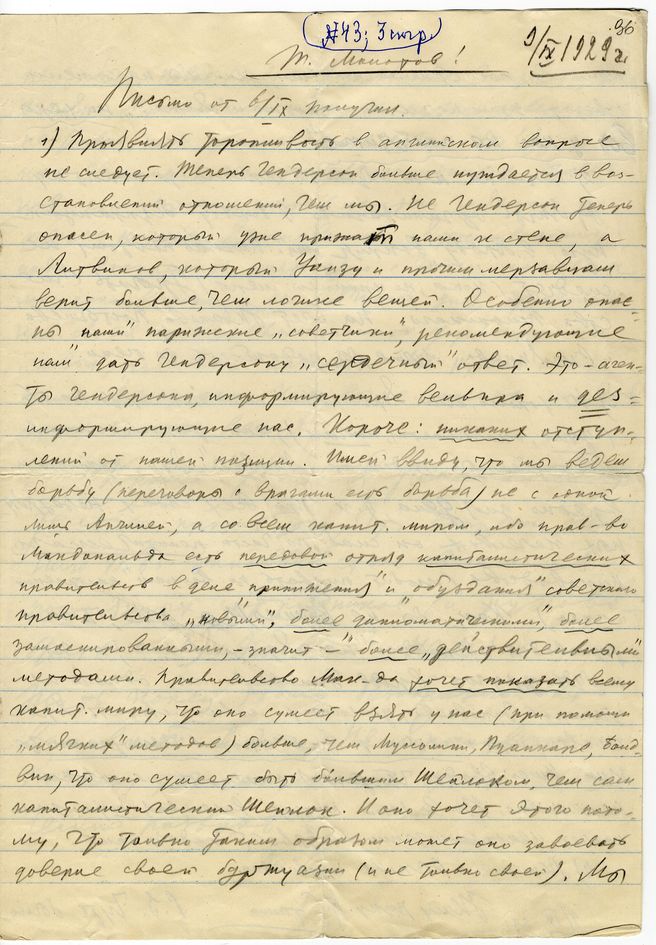 36
№43; 3 стр.
9/IX 1929 г.
т. Молотов!
Письмо от 6/IX получил.
1) Проявлять торопливость в английском вопросе
не следует. Теперь Гендерсон больше нуждается в вос-
становлении отношений, чем мы. Не Гендерсон теперь
опасен, который уже прижат нами к стене, а
Литвинов, который Уайзу и прочим мерзавцам
верит больше, чем логике вещей. Особенно опас-
ны наши "парижские "советчики", рекомендующие
нам дать Гендерсону "сердечный" ответ. Это – аген-
ты Гендерсона, информирующие and дез-
информирующие нас. Короче: никаких отступ-
лений от нашей позиции. Имей ввиду, что мы ведем
борьбу (переговоры с врагами есть борьба) не с одной
лишь Англией, а со всем капит. миром, ибо прав-во
Макдональда есть передовой отряд капиталистических
правительств в деле "принижения" и "обуздания" советского
правительства "новыми", более "дипломатическими", более
замаскированными, – значит – более "действительными"
методами. Правительство Мак-да хочет показать всему
капит. миру, что оно сумеет взять у нас (при помощи
"мягких" методов) больше, чем Муссолини, Пуанкаре, Болд-
вин, что оно сумеет быть бо́льшим Шейлоком, чем сам
капиталистический Шейлок. И оно хочет этого пото-
му, что только таким образом может оно завоевать
доверие своей буржуазии (и не только своей). Мы